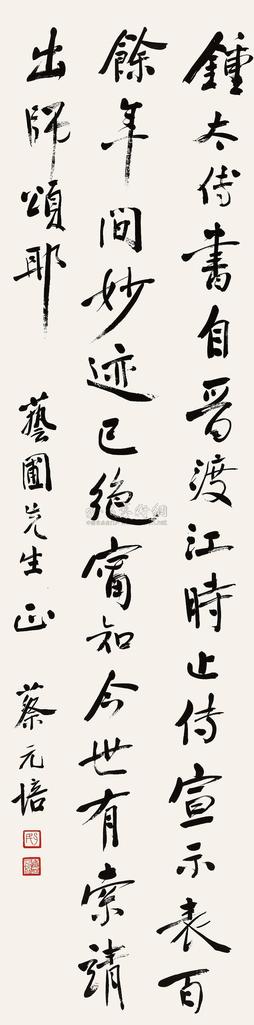 鍾太傅書自晉渡江時止傳宣示表百
餘年間妙迹已絕甯知今世有索靖
出師頌耶
藝圃先生 正
蔡元培